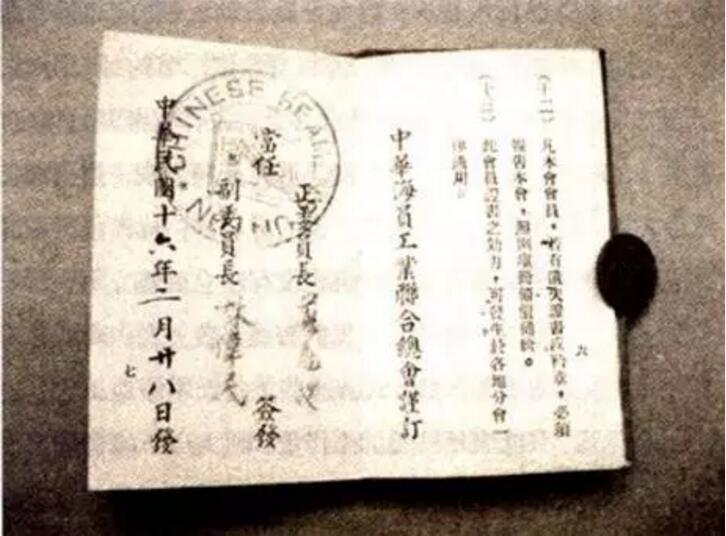 (十二) 凡本會會員,若有遺失證書或襟章,必須
報告本會,
(十三) 此會員證書之効力,可發生於各埠分會一
律適用。
六
中華海員工業聯合總會謹訂
正委員長
常任
副委員長 林偉民
簽發
中華民國十六年二月廿八日發
七
CHINESE SEA
UNION